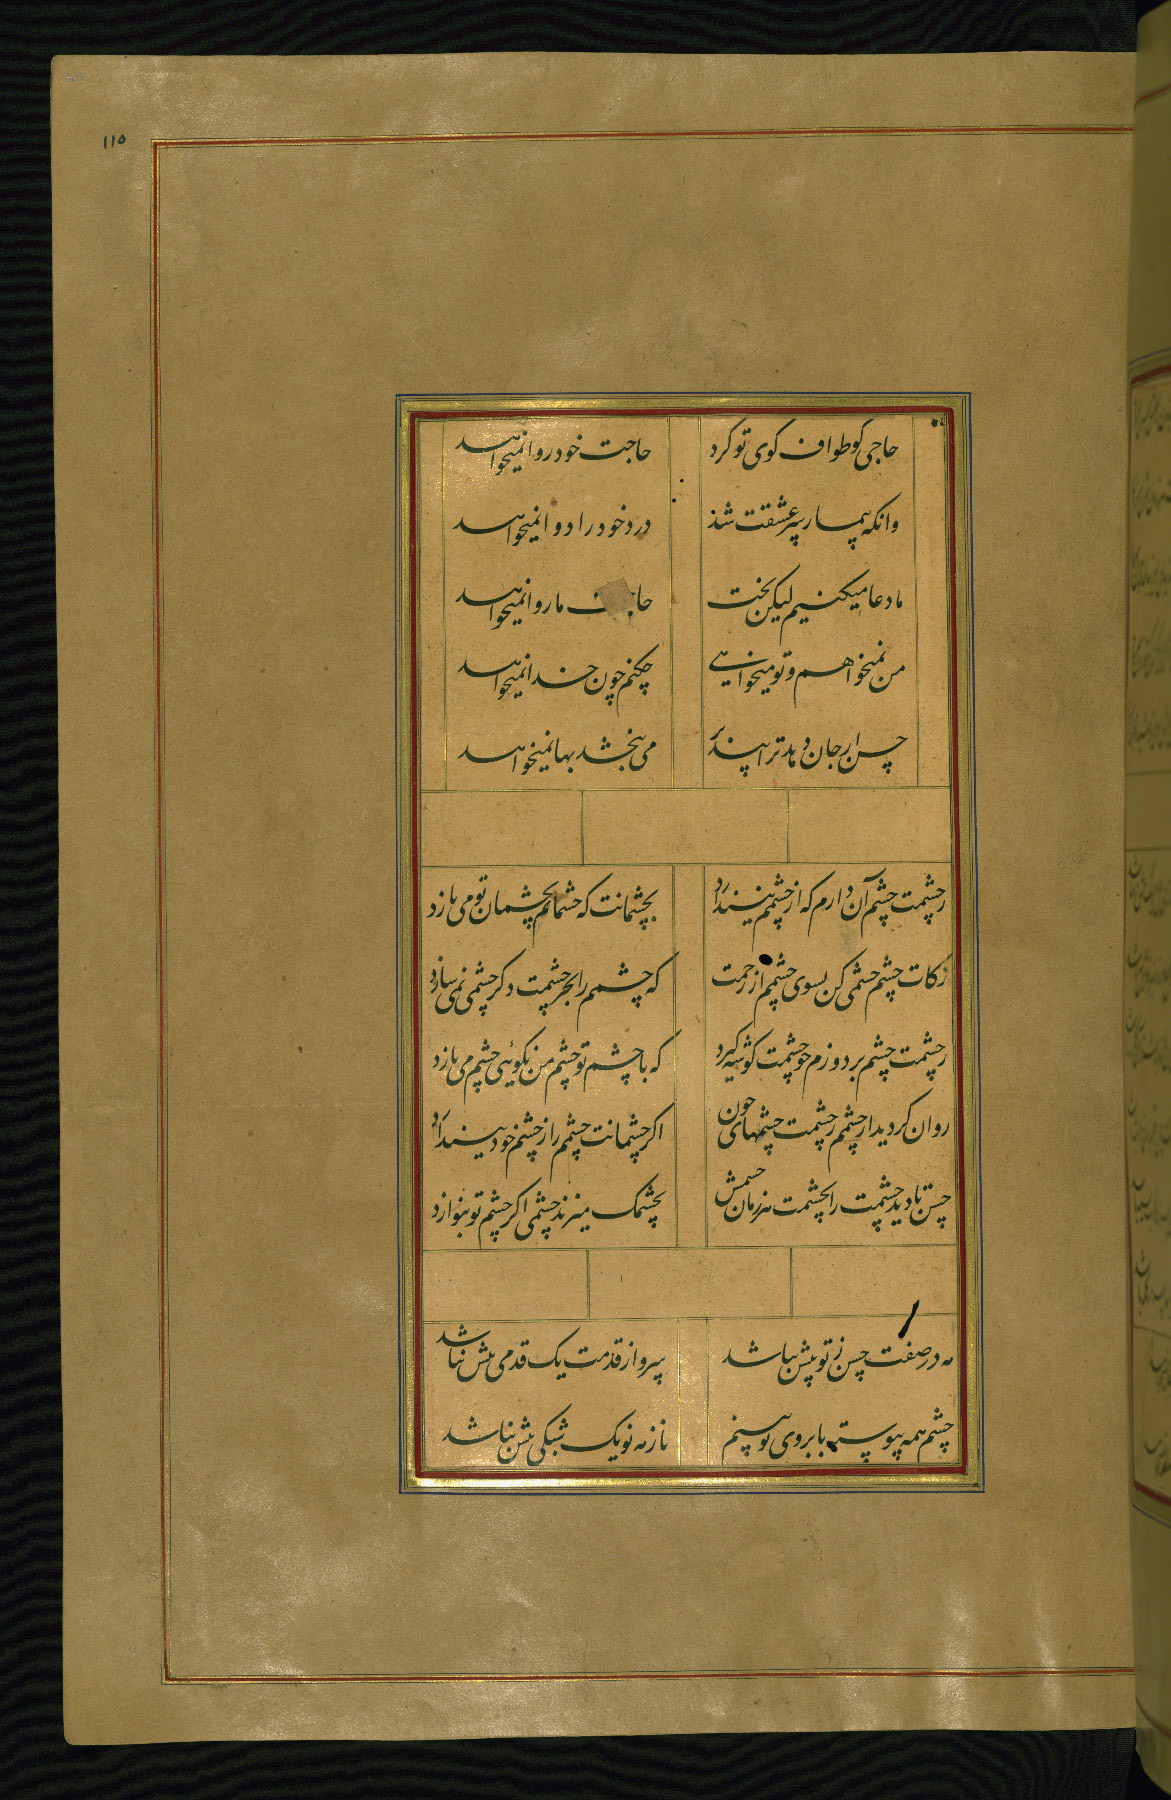 ۱۱۵
حاجی کو طواف کوی تو کرد حاجت خود روا نمیخواهد
وانکه بیمار سر عشقت شد درد خود را دوا نمیخواهد
ما دعا میکنیم لیکن بخت ما روا نمیخواهد
من نمیخواهم و تو میخواهی چکنم چون خدا نمیخواهد
حسن ار جان دهد ترا می بخشد بها نمیخواهد
ز چشمت چشم آن دارم که از چشمم نیندازد بچشمانت که چشمانم بچشمان تو می بازد
زکات چشم چشمی کن بسوی چشمم از رحمت که چشمم را بجز چشمت دکر چشمی نمی سازد
ز چشمت چشم بردوزم چو چشمت گوشه گیرد که با چشم تو چشم من نکویی چشم می بازد
روان کردید از چشمم ز چشمت چشمهای خون اکر چشمانت چشمم را ز چشم خود بیندازد
حسن تا دید چشمت را بچشمت هر زمان چشمش بچشمک میزند چشمی اکر چشم تو بنوازد
مه در صفت حسن ز تو بیش نباشد سرو از قدمت یک قدمی پیش نباشد
چشم همه پیوسته بابروی تو بینم تا ز مه نو یک شبکی بیش نباشد